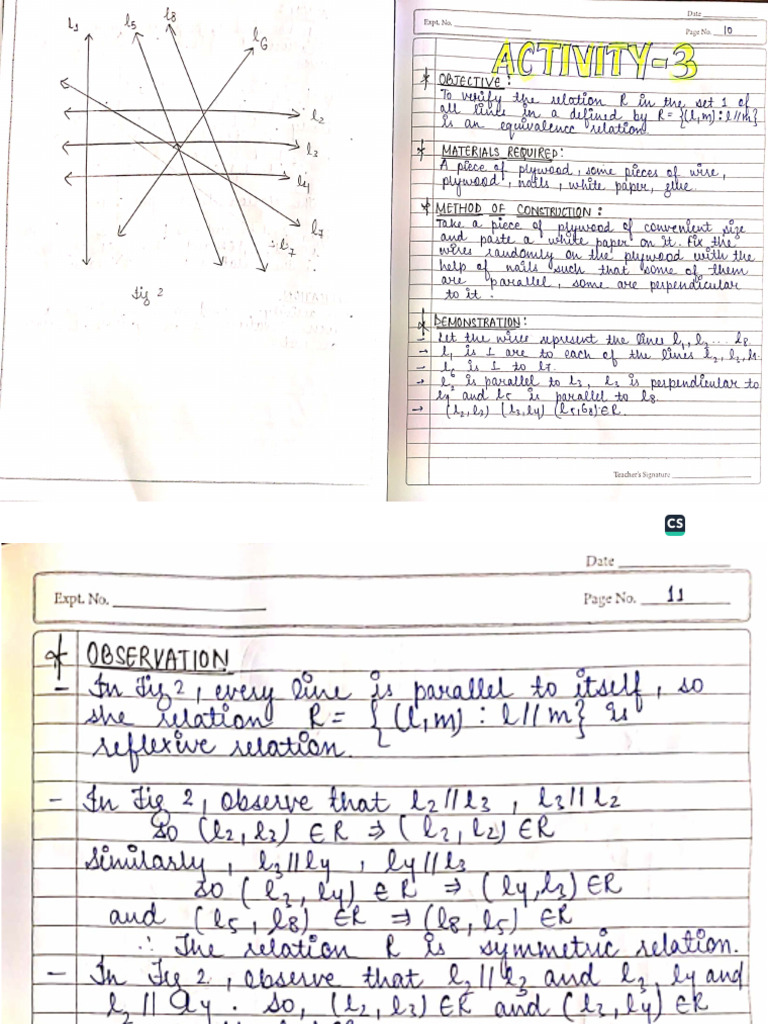 l1
l5
l8
l6
l2
l3
l4
l7
l7
Fig 2
Date
Expt. No.
Page No. 10
ACTIVITY-3
* OBJECTIVE:
To verify the relation R in the set 1 of
all lines in a defined by R = {(l,m): l//m}
is an equivalence relation.
* MATERIALS REQUIRED:
A piece of plywood, some pieces of wire,
plywood, nails, white paper, glue.
* METHOD OF CONSTRUCTION:
Take a piece of plywood of convenient size
and paste a white paper on it. Fix the
wires randomly on the plywood with the
help of nails such that some of them
are parallel, some are perpendicular
to it.
* DEMONSTRATION:
- Let the wires represent the lines l1, l2 ... l8.
→ l1 is 1 are to each of the lines l2, l3, l4.
- l6 is 1 to l7.
→ l2 is parallel to l3, l3 is perpendicular to
l4 and l5 is parallel to l8.
→ (l2, l3) (l3, l4) (l5, l8) ∈ R.
Teacher's Signature
CS
Date
Expt. No.
Page No. 11
* OBSERVATION
- In Fig 2, every line is parallel to itself, so
she relation R = {(l,m) : l//m} is
reflexive relation.
- In Fig 2, observe that l2//l3, l3//l2
So (l2, l3) ∈ R ⇒ (l3, l2) ∈ R
Similarly, l3//l4, l4//l3
so (l3, l4) ∈ R ⇒ (l4, l3) ∈ R
and (l5, l8) ∈ R ⇒ (l8, l5) ∈ R
∴ The relation R is symmetric relation.
- In Fig 2, observe that l2//l3 and l3, l4 and
l2 // l4. So, (l2, l3) ∈ R and (l3, l4) ∈ R